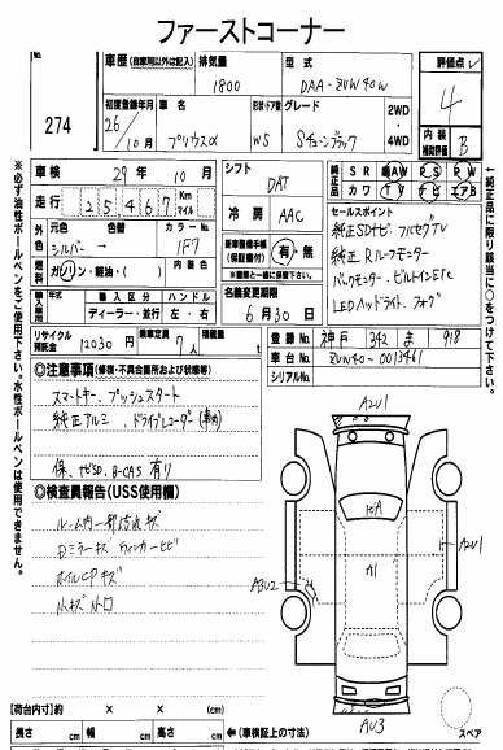 ファーストコーナー
No.
274
車歴 (自家用以外は記入)
排気量
型式
評価点
1800
DAA-ZVW40W
4
初度登録年月
車名
形状・ドア数
グレード
2WD
・
4WD
26/10月
プリウスα
W5
Sチューンブラック
内装
補助評価
B
車検
29年10月
シフト
DAT
純正品
SR AW PS PW
カワ TV ナビ エアB
走行
25467
Km
マイル
冷房
AAC
セールスポイント
純正SDナビ・フルセグTV
純正Rルーフモニター
バックモニター・ビルトインETC
LEDヘッドライト、フォグ
外色
元色
色替
カラーNo.
シルバー
1F7
燃料
ガソリン・軽油・( )
内装色
新車整備手帳
(保証書付)
有・無
※書類と一緒に保管下さい。
輸入車
年式
輸入区分
ハンドル
ディーラー・並行
左・右
名義変更期限
6月30日
リサイクル
預託金
12030円
乗車定員
7人
積載量
t
登録No.
神戸 342 ま 918
車台No.
ZVW40-0013461
シリアルNo.
◎注意事項(修復・不具合箇所および状態等)
スマートキー、プッシュスタート
純正アルミ、ドライブレコーダー(車内)
保、ナビSD、B-CAS有り
◎検査員報告(USS使用欄)
ルーム内一部
キズ
ホイルCPキズ
小キズ 小凹
A2U1
A1
A2U1
AU3
【荷台内寸】約 × × (cm)
長さ cm 幅 cm 高さ cm
←(車検証上の寸法)
スペア
※必ず油性ボールペンをご使用下さい。水性ボールペンは使用できません。
←純正品に限り該当に○をつけて下さい。